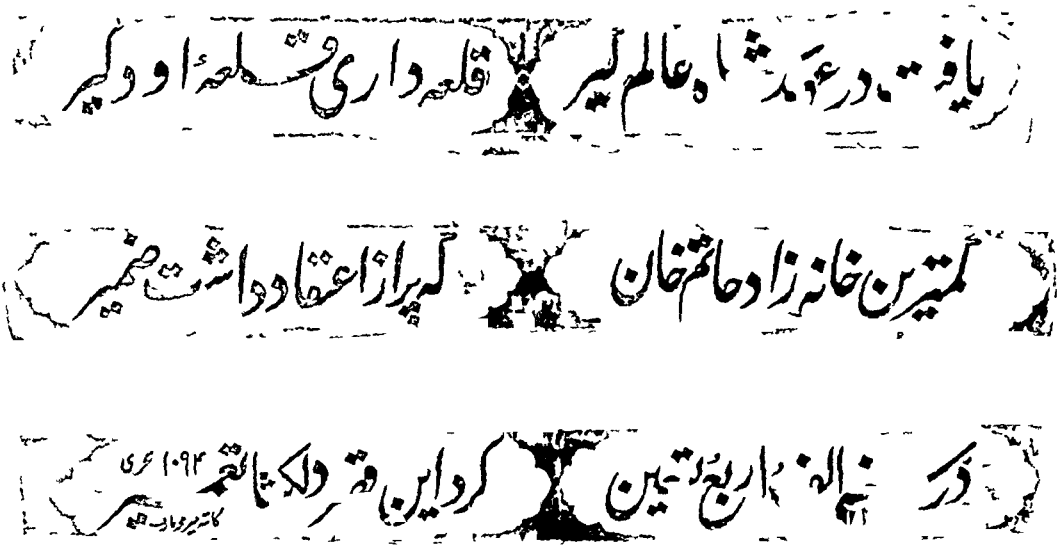 یافت در عهد شاه عالم گیر قلعه داری قلعهٔ اودگیر
کمترین خانه زاد حاتم خان که پر از اعتقاد داشت ضمیر
در الف اربع تسعین کرد این قصر دلکشا تعمیر ۱۰۹۴